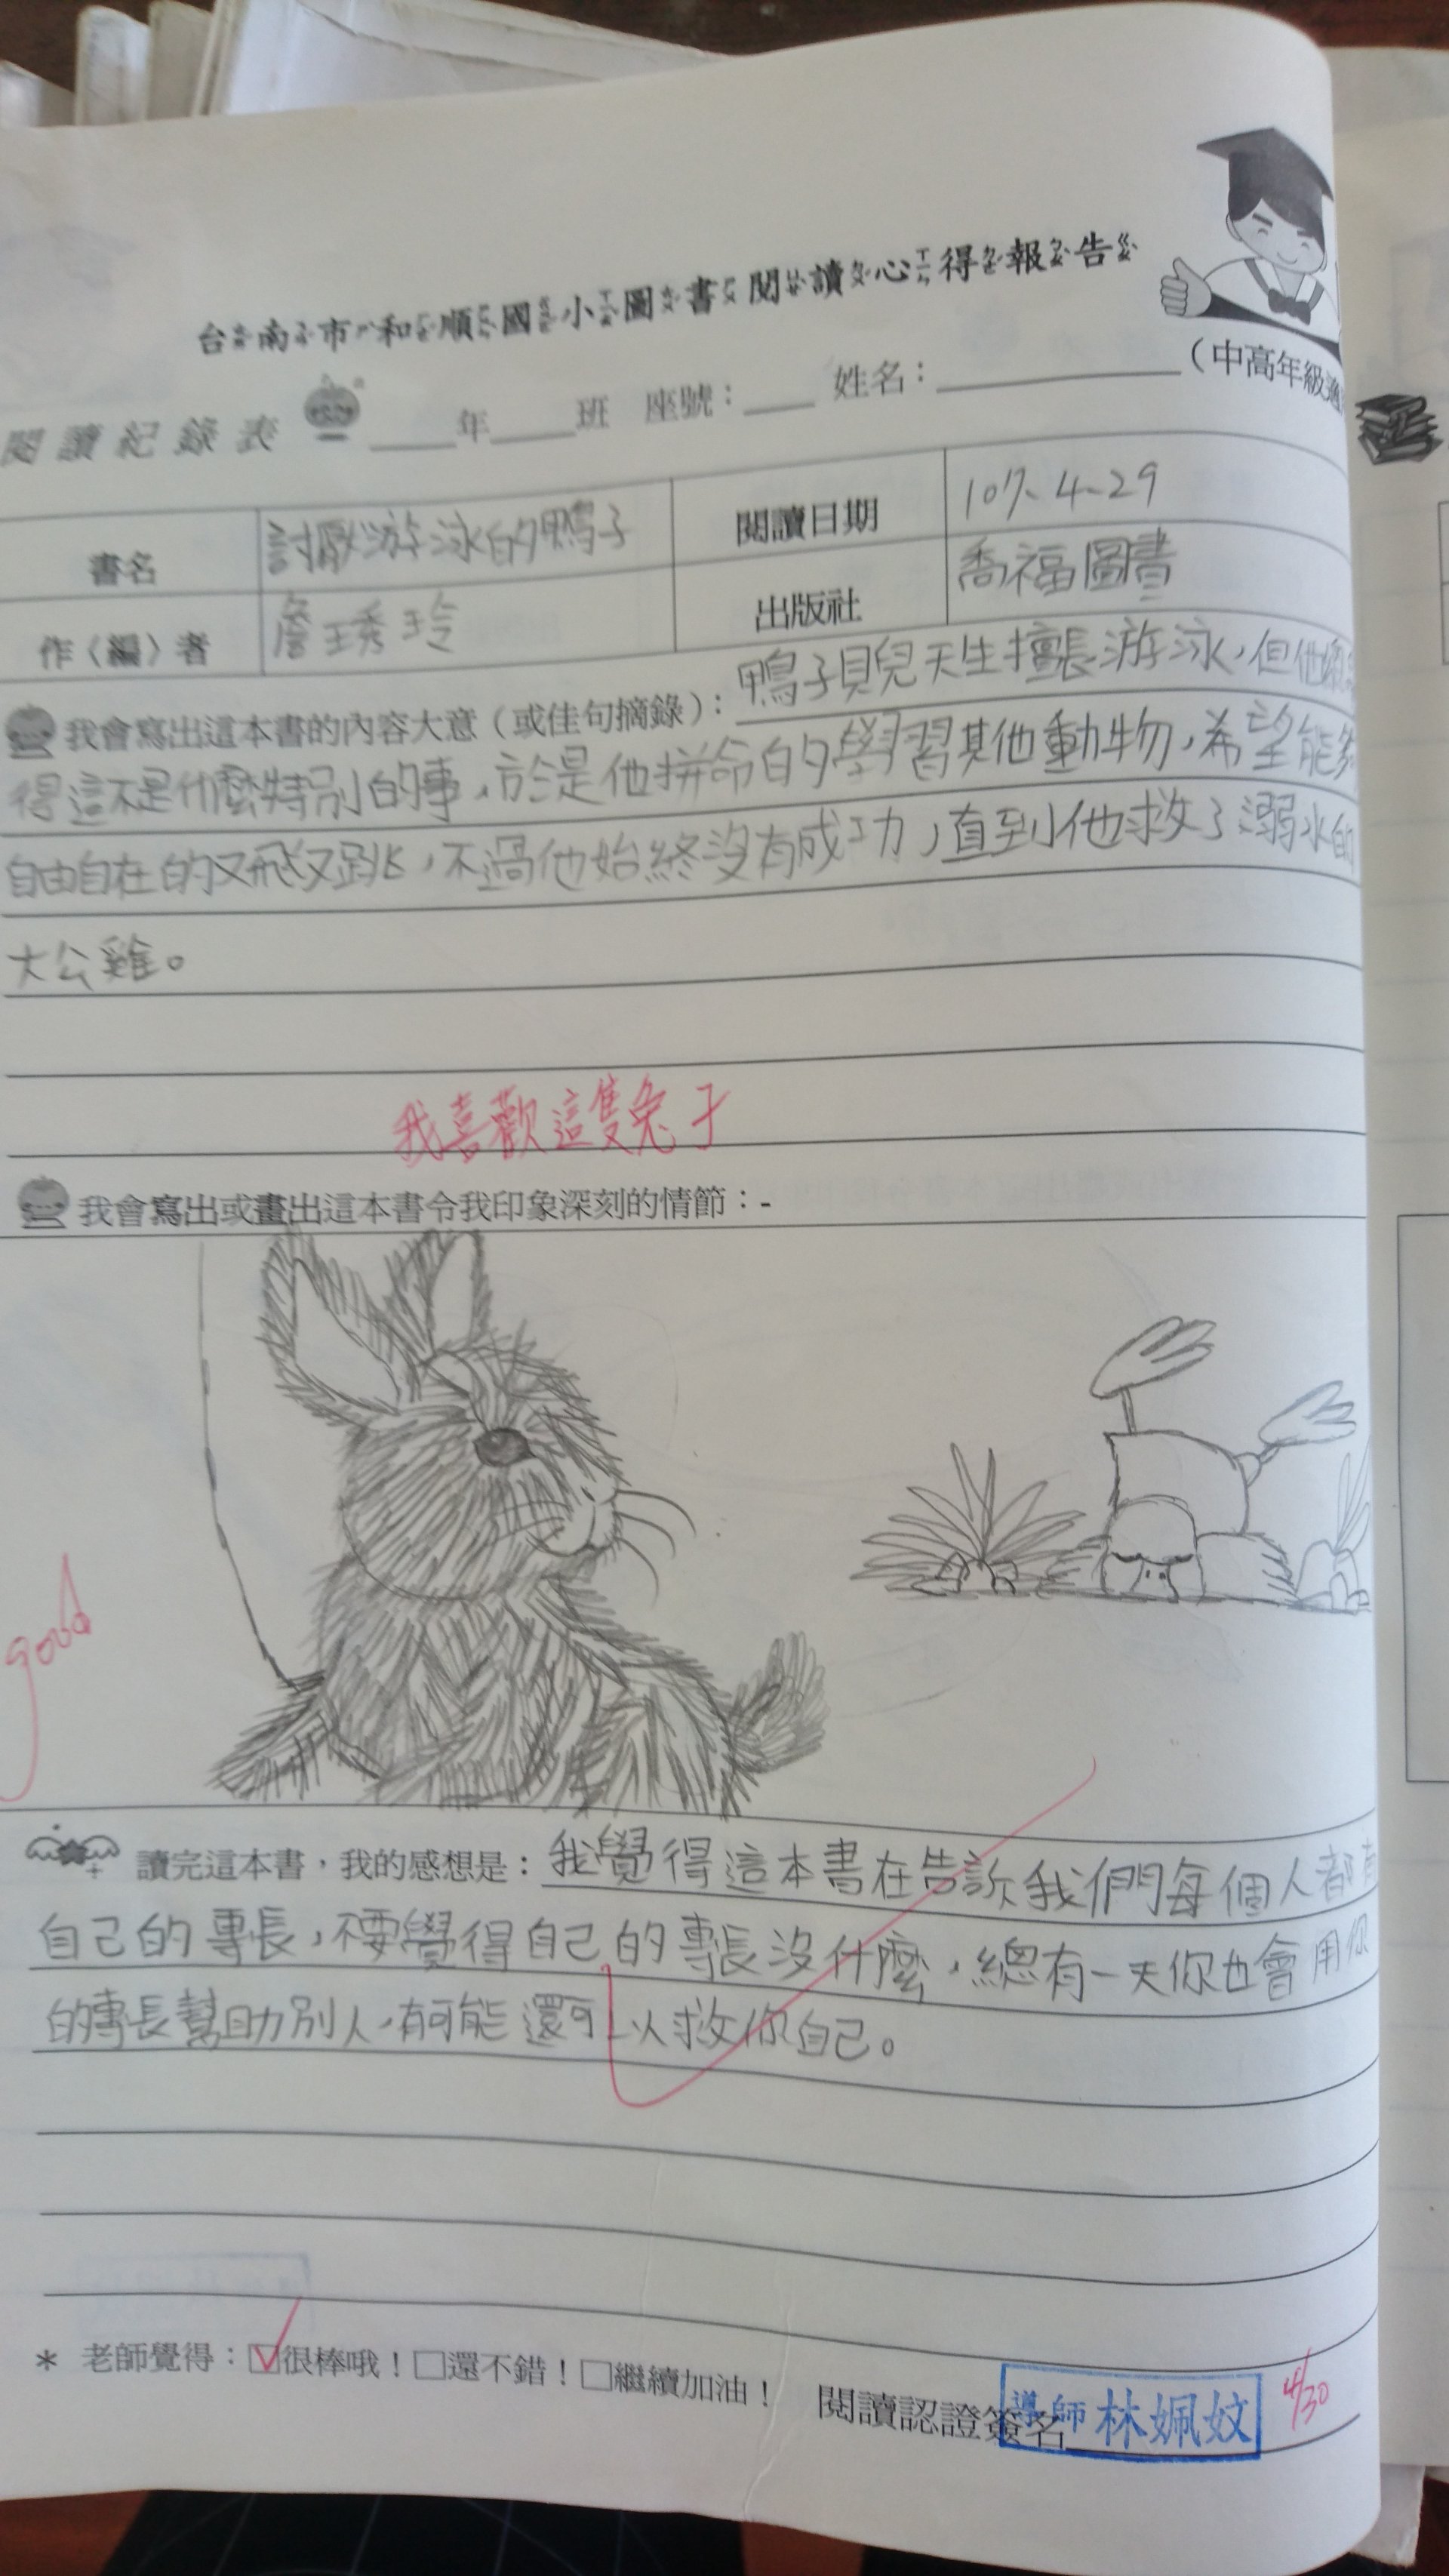 台南市和順國小圖書閱讀心得報告
(中高年級適
閱讀紀錄表 ____年____班 座號：____ 姓名：________
書名 討厭游泳的鴨子 閱讀日期 107、4、29
作〈編〉者 詹琇玲 出版社 喬福圖書
我會寫出這本書的內容大意（或佳句摘錄）：鴨子貝兒天生擅長游泳，但他總
得這不是什麼特別的事，於是他拼命的學習其他動物，希望能夠
自由自在的又飛又跳，不過他始終沒有成功，直到他救了溺水的
大公雞。
我喜歡這隻兔子
我會寫出或畫出這本書令我印象深刻的情節：-
good
讀完這本書，我的感想是：我覺得這本書在告訴我們每個人都有
自己的專長，不要覺得自己的專長沒什麼，總有一天你也會用你
的專長幫助別人，有可能還可以救你自己。
* 老師覺得：☑很棒哦！□還不錯！□繼續加油！
閱讀認證簽名 導師 林姵妏 4/30